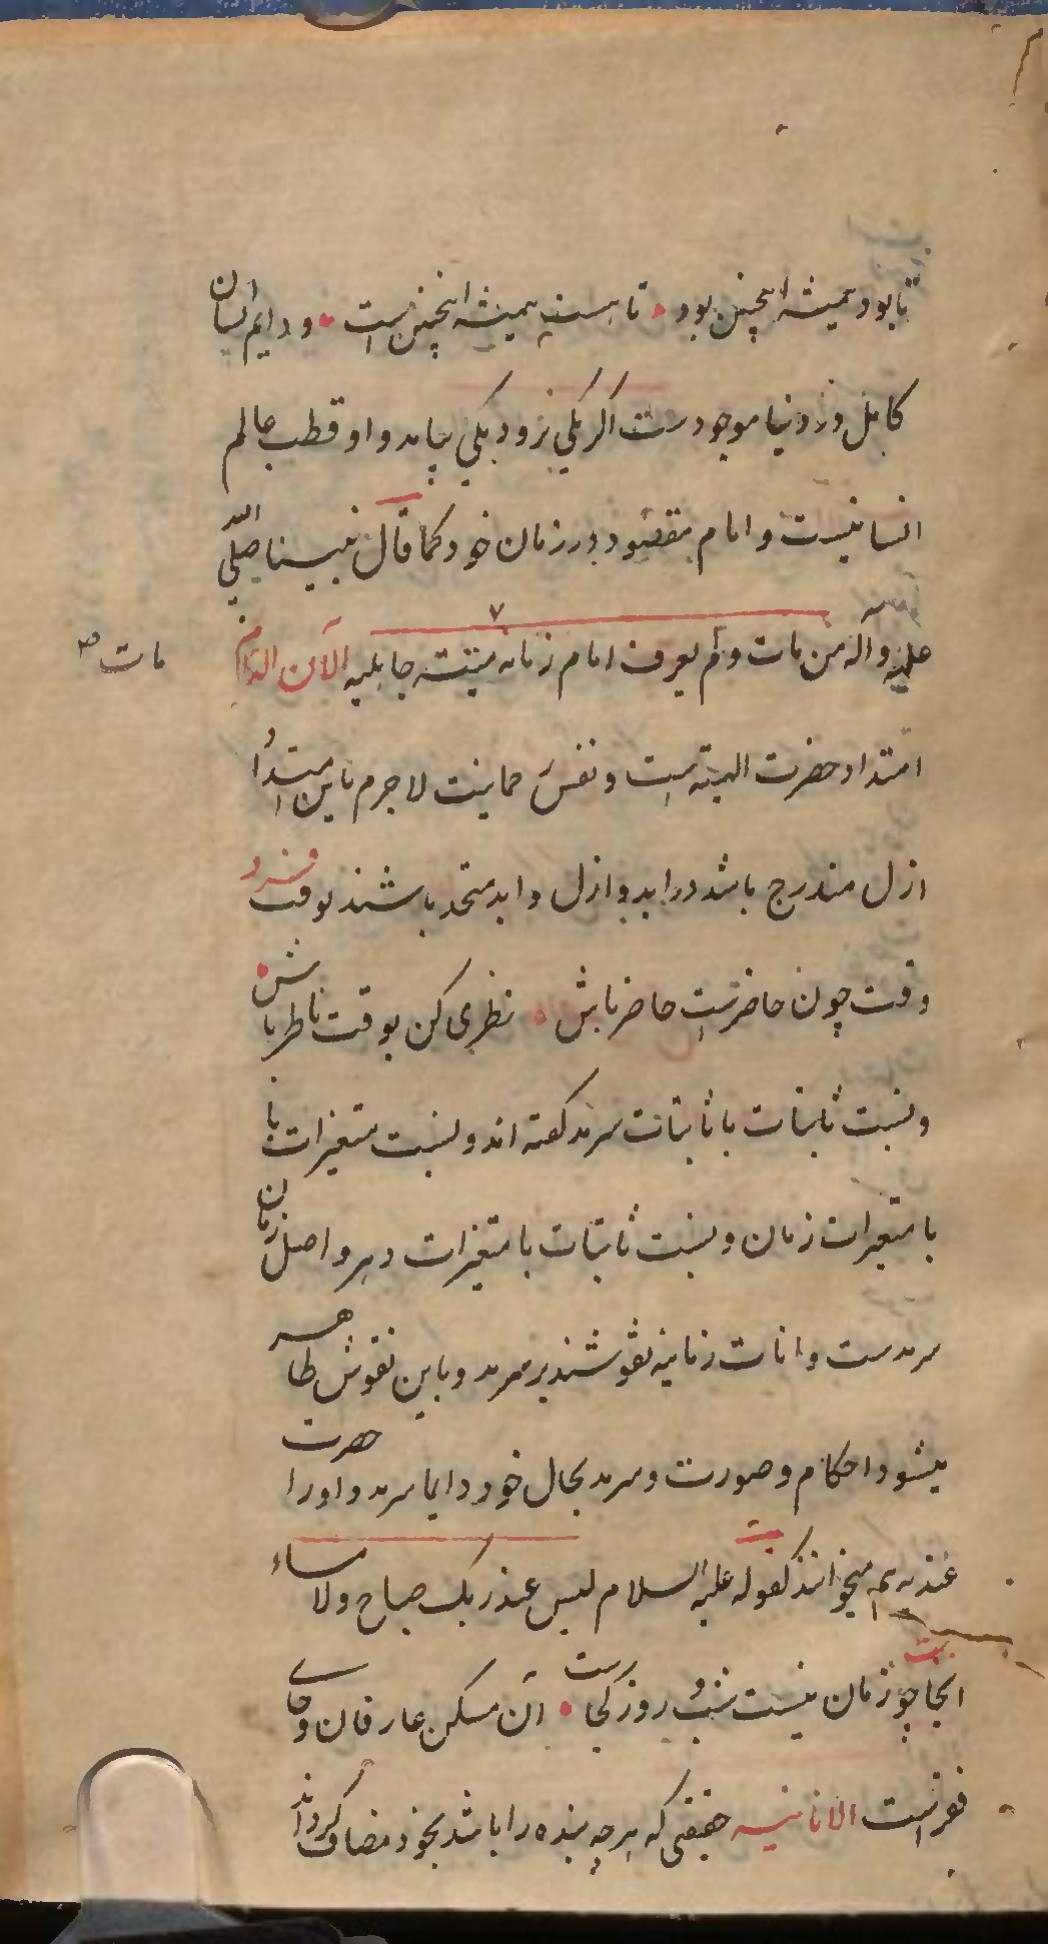 تا بود همیشه اینچنین بود تا هست همیشه اینچنین است و دایم انسان
کامل در دنیا موجودست اگر یکی نرود یکی بیاید و او قطب عالم
انسانیست و امام مقصود در زمان خود کما قال نبینا صلی الله
علیه وآله من مات ولم یعرف امام زمانه میتته جاهلیه الآن الدایم
مات ص
امتداد حضرت الهیته است و نفس رحمانیت لاجرم باین امتداد
ازل مندرج باشد در ابد و ازل و ابد متحد باشند بوقت فرد
وقت چون حاضرست حاضر باش نظری کن بوقت ناظر باش
و نسبت ثابتات با ثابتات سرمد گفته اند و نسبت متغیرات با
با متغیرات زمان و نسبت ثابتات با متغیرات دهر و اصل زمان
سرمدست و انات زمانیه نقوشند بر سرمد و باین نقوش ظاهر
میشود احکام و صورت و سرمد بحال خود دایما سرمد و او را حضرت
عندیه هم میخوانند کقوله علیه السلام لیس عند ربک صباح ولا مساء
بیت
آنجا چو زمان نیست شب و روز کجاست آن مسکن عارفان و جای
فقراست الانانیه حقیقی که هرچه بنده را باشد بخود مضاف گرداند